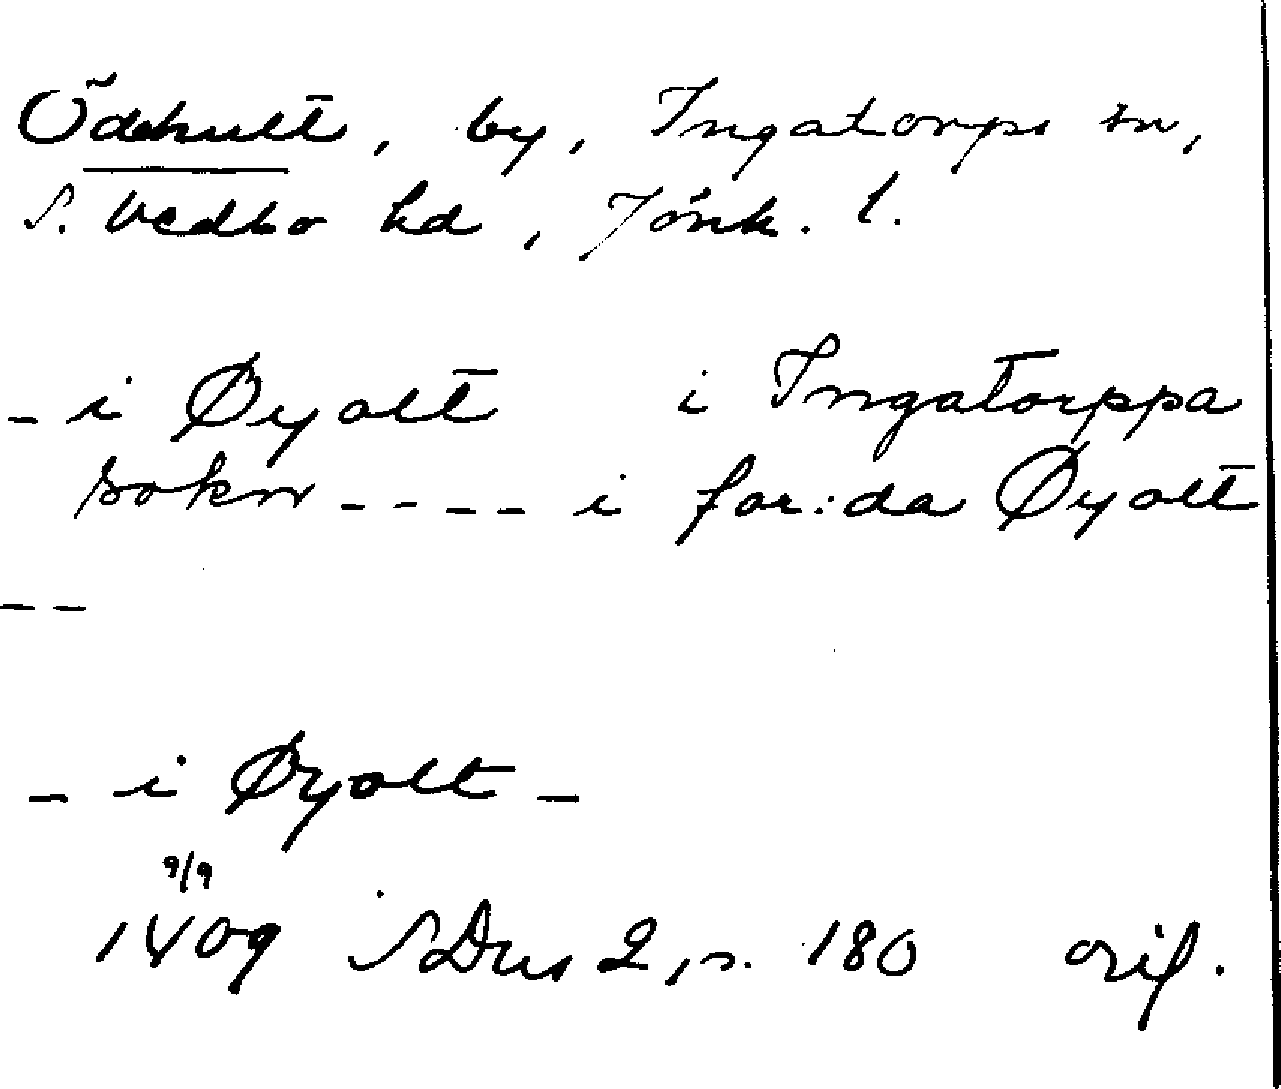 Ödehult, by, Ingatorps sn,
S. Vedbo hd, Jönk. l.
- i Øyolt i Ingatorppa
sokn - - - - i for:da Øyolt
- -
- i Øyolt -
9/9
1409 SDns 2, s. 180 orig.